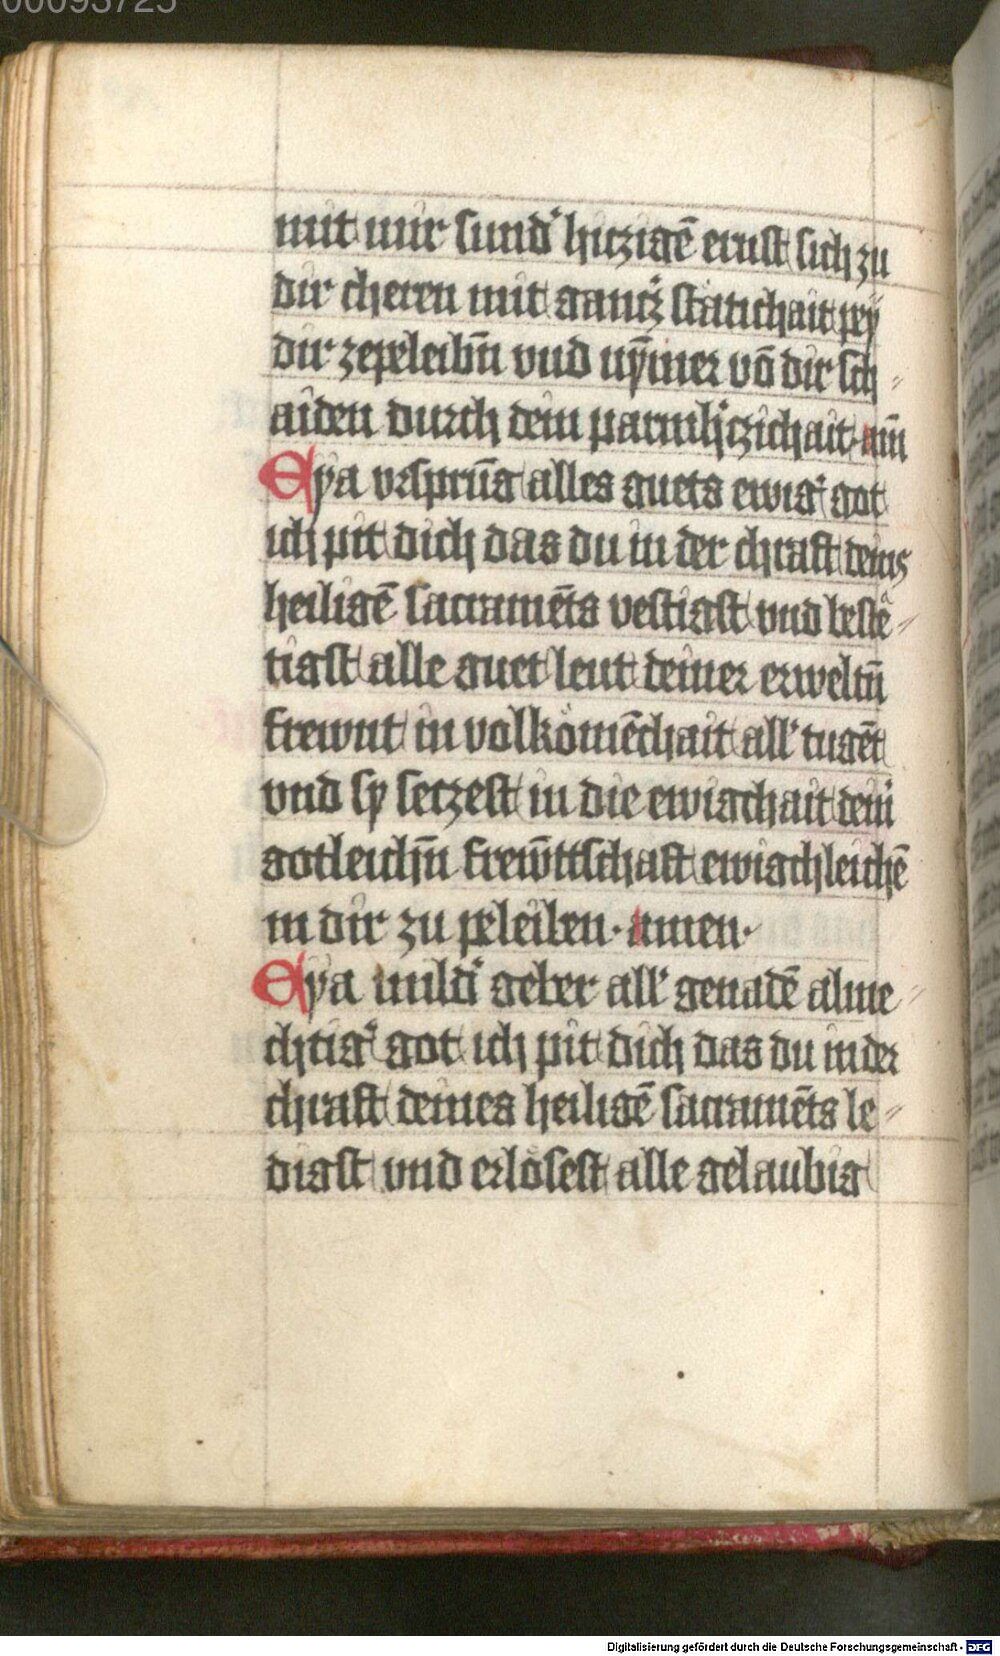 00093725
mit mir sund' hiczigē ernst sich zu
dir cheren mit gancz' stätichait pey
dir zepeleibn̄ vnd nȳmer vō dir sch
aiden durch dein parmh'czichait · am̄
Eya vrsprūg alles guets ewig' got
ich pit dich das du in der chraft deins
heiligē sacramēts vestigst vnd bestë
tigst alle guet leut deiner erweltn̄
frewnt in volkömēchait all' tugēt
vnd sy seczest in die ewigchait dein'
gotleichn̄ frew̄ttschaft ewigchleichē
in dir zu peleiben · amen ·
Eya mild' geber all' genadē alme
chtig' got ich pit dich das du in der
chraft deines heiligē sacramēts le
digst vnd erlösest alle gelaubig
Digitalisierung gefördert durch die Deutsche Forschungsgemeinschaft - DFG